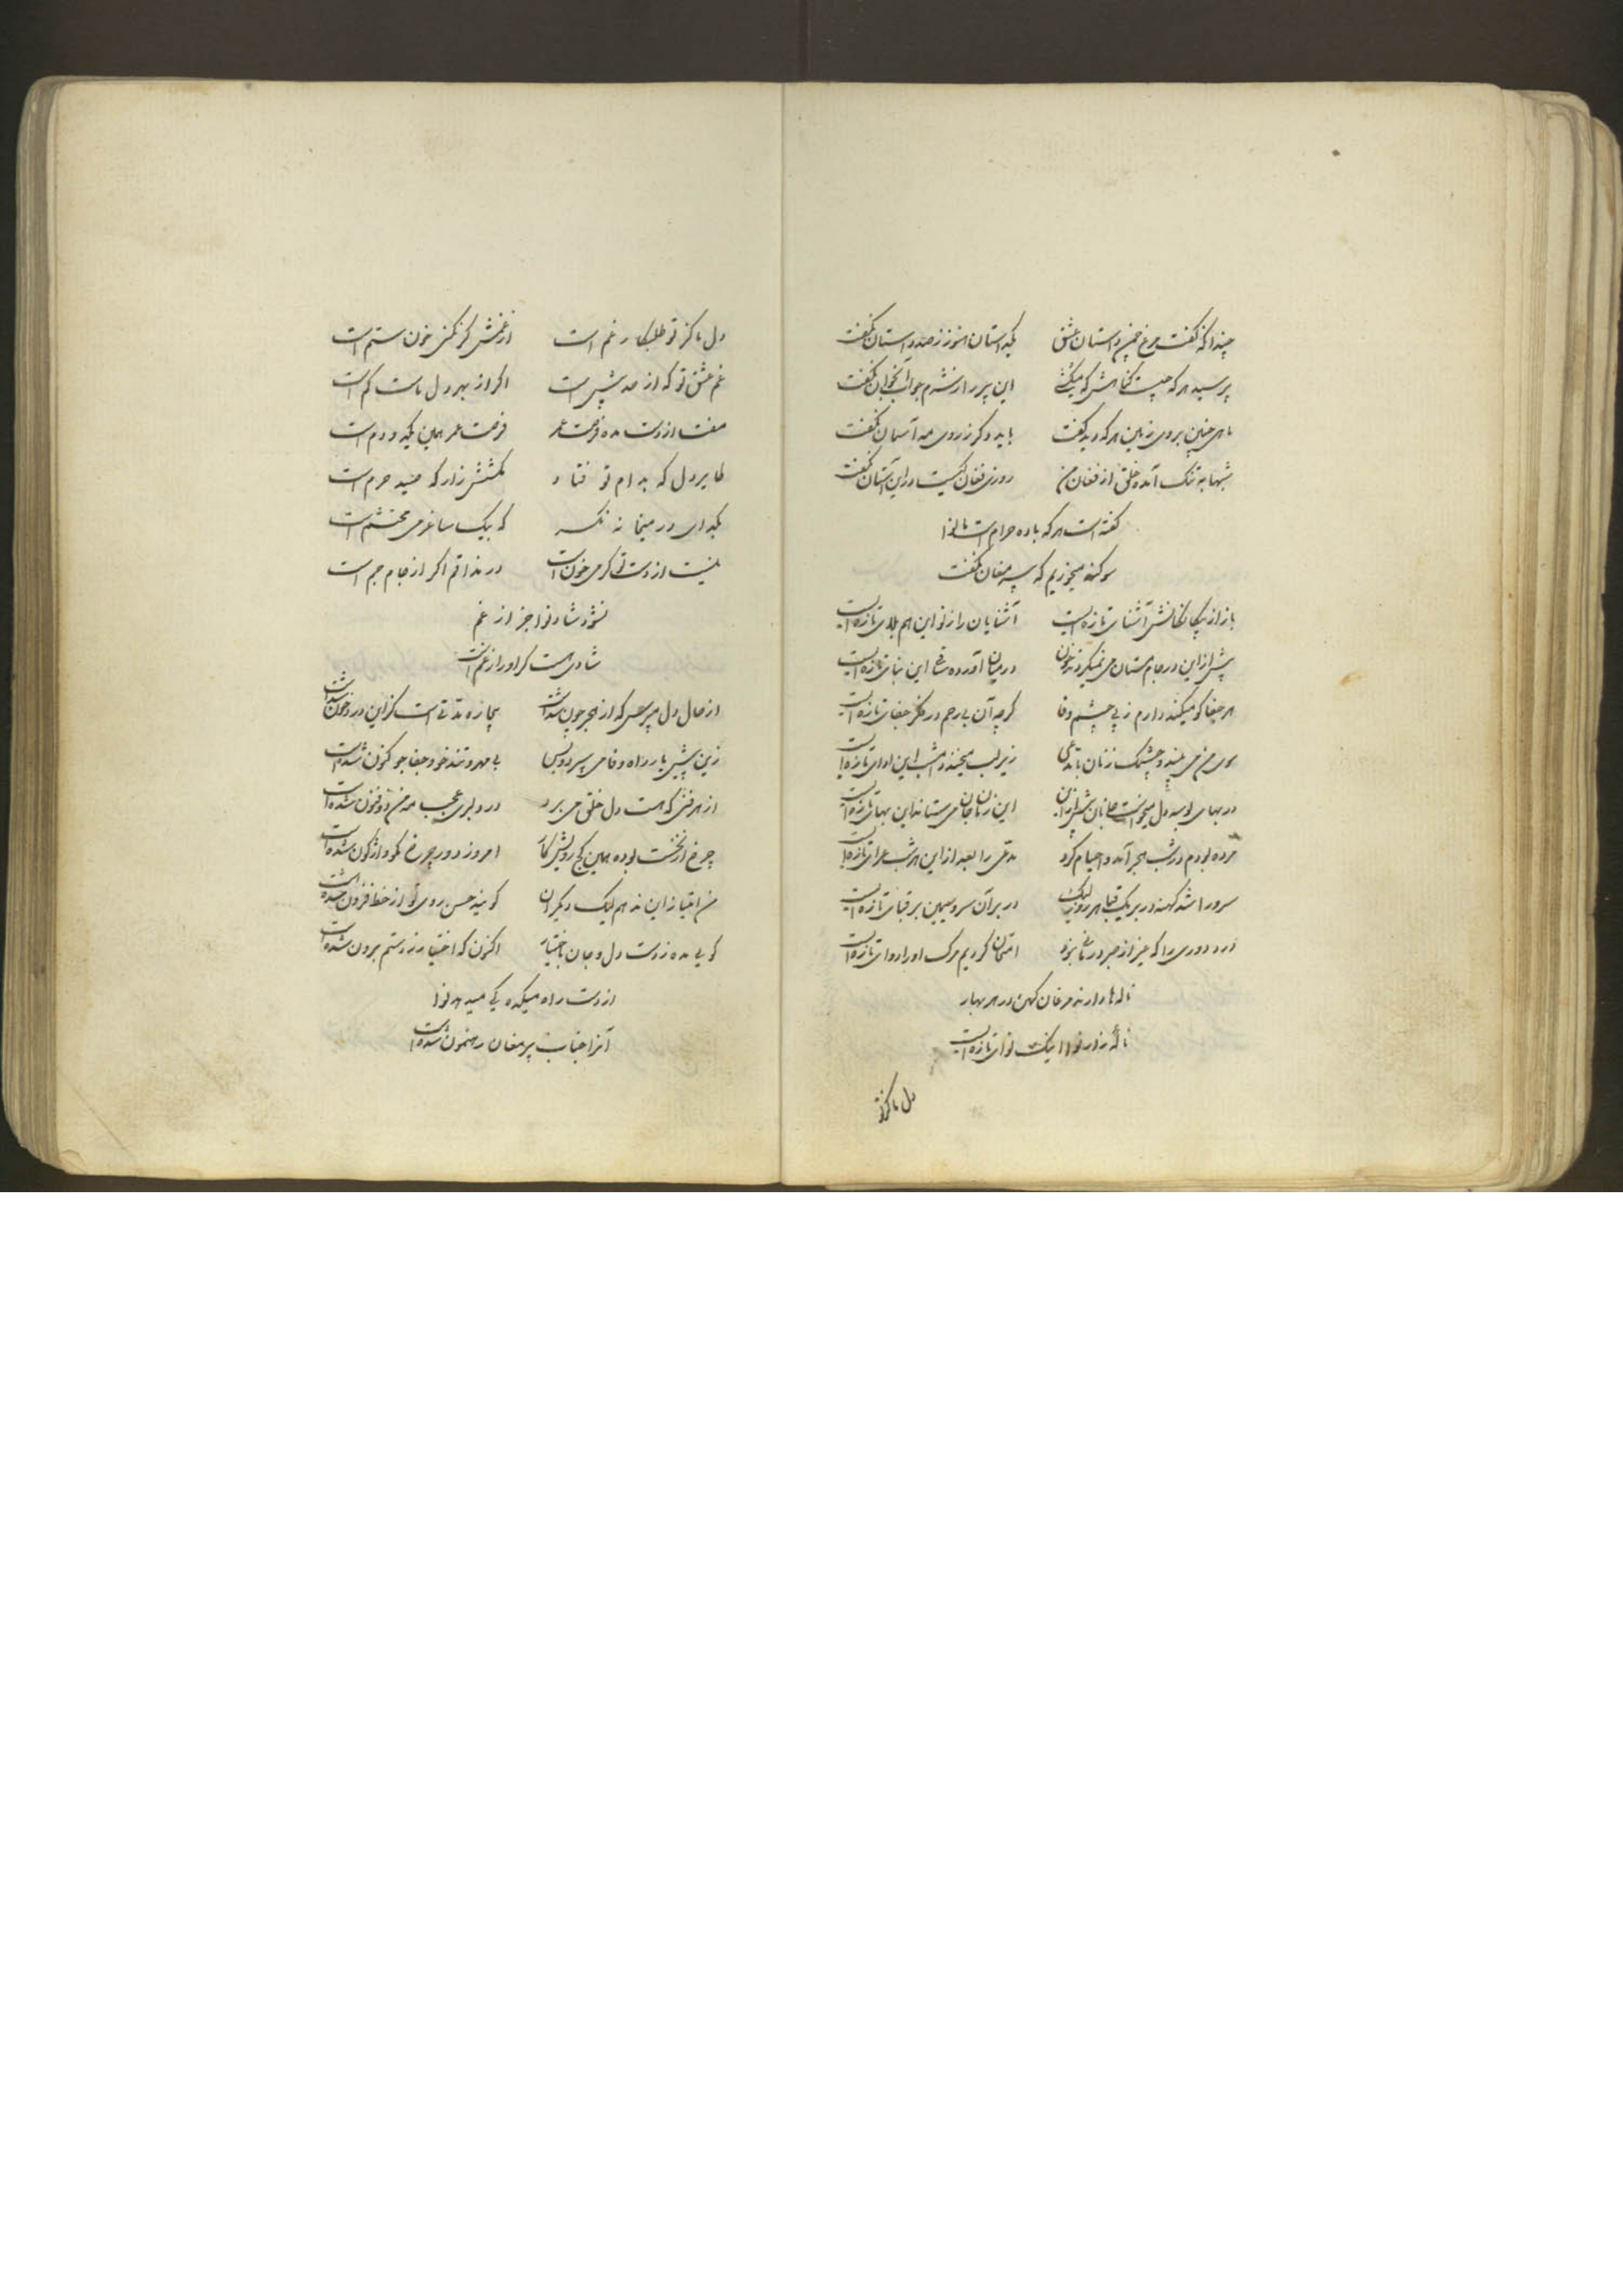 چندانکه گفت مرغ چمن داستان عشق یکداستان هنوز ز صد داستان نگفت
پرسید هر که چیست گناهش که میکشی این پر ز شرم جواب آنجوان نگفت
ماهی چنین بروی زمین هر که دید گفت باید دگر ز روی مه آسمان نگفت
شبها به تنگ آمده خلق از فغان من روزی فغان کیست در این آستان نگفت
گفته است هر که باده حرام است تا نوا
سوگند میخوریم که پیر مغان نگفت
باز از بیگانگانش آشنای تازه ایست آشنایان را ز نو این هم بلای تازه ایست
پیش از این در جام مستان می نمیکردند خون در میان آورده ساقی این بنای تازه ایست
هر جفا کو میکند دارم ز پی چشم وفا گرچه آن بی رحم در فکر جفای تازه ایست
سوی من می بیند و چشمک زنان با مدعی زیر لب میخندد امشب این ادای تازه ایست
در بهای بوسه دل میخواست جانان پیش از این این زمان جان می ستاند این بهای تازه ایست
مرده بودم در شب هجر آمد و احیام کرد مدعی را بعد از این هر شب عزای تازه ایست
سرو را شد کهنه در بر یک قبا هر روز لیک در بر آن سرو سیمین بر قبای تازه ایست
درد دوری را که غیر از صبر درمانی نبود امتحان کردیم مرگ او را دوای تازه ایست
ناله ها دارند مرغان کهن در هر بهار
ناله زار نوا اینک نوای تازه ایست
دل ما کز تو
دل ما کز تو طلبکار غم است از غمش گر نکنی خون ستم است
غم عشق تو که از حد بیش است اگر از بهر دل ماست کم است
مفت از دست مده فرصت عمر فرصت عمر همین یکدو دم است
طایر دل که بدام تو فتاد مکشش زار که صید حرم است
یکدای در میخانه نگر که بیک ساغر می محتشم است
نیست از دست تو گر می خون است در مذاقم اگر از جام جم است
نشود شاد نوا جز از غم
شادی هست گر او را ز غم است
از حال دل مپرس که از هجر چون شد است بیچاره مدتی است کز این درد خون شد است
زین پیش یار راه وفا می سپرد و بس بی مهر و تند خو و جفا جو کنون شده است
از هر فنی که هست دل خلق می برد در دلبری عجب مه من ذو فنون شده است
چرخ از نخست بوده همین کج رویش کار امروز دور چرخ نگو واژگون شده است
من امتیاز این ندهم لیک دیگران گویند حسن روی تو از خط فزون شده است
گویی مده ز دست دل و جان باختیار اکنون که اختیار ز دستم برون شده است
از دست راه میکده کی میدهد نوا
آنرا جناب پیر مغان رهنمون شده است